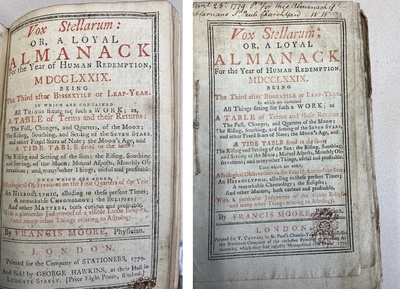 Vox Stellarum:
OR, A LOYAL
ALMANACK
For the Year of HUMAN REDEMPTION,
MDCCLXXIX.
BEING
The Third after BISSEXTILE or LEAP-YEAR.
IN WHICH ARE CONTAINED
All Things fitting for such a WORK; as,
A TABLE of Terms and their Returns:
The Full, Changes, and Quarters, of the Moon;
The Rising, Southing, and Setting of the SEVEN STARS,
and other Fixed Stars of Note; the Moon's Age, and
A TIDE TABLE fitted to the same;
The Rising and Setting of the Sun; the Rising, Southing,
and Setting of the Moon; Mutual Aspects, Monthly Observations; and many other Things, useful and profitable.
UNTO WHICH ARE ADDED,
Astrological OBSERVATIONS on the Four Quarters of the Year;
An HIEROGLYPHIC, alluding to these present Times;
A remarkable CHRONOLOGY; the ECLIPSES;
And other MATTERS, both curious and profitable.
With a particular Judgement of a visible Lunar Eclipse,
and many other Things relating to Astrology.
By FRANCIS MOORE, Physician.
LONDON,
Printed for the Company of STATIONERS, 1779.
And Sold by GEORGE HAWKINS, at their Hall in
LUDGATE STREET. [Price Eight Pence, stitched.]
1779
Vox Stellarum:
OR, A LOYAL
ALMANACK
For the Year of HUMAN REDEMPTION,
MDCCLXXIX.
BEING
The Third after BISSEXTILE or LEAP-YEAR.
In which are contained
All Things fitting for such a WORK; as
A TABLE of Terms and their Returns;
The Full, Changes, and Quarters of the Moon;
The Rising, Southing, and Setting of the SEVEN STARS,
and other Fixed Stars of Note; the Moon's Age, and
A TIDE TABLE fitted to the same;
The Rising and Setting of the Sun; the Rising, Southing,
and Setting of the Moon; Mutual Aspects, Monthly Observations; and many other Things, useful and profitable.
Unto which are added,
Astrological OBSERVATIONS on the Four Quarters of the Year
An HIEROGLYPHIC, alluding to these present Times;
A remarkable Chronology; the Eclipses;
And other Matters, both curious and profitable.
With a particular Judgement of the visible Eclipse
and many other Things relating to Astrology.
By FRANCIS MOORE,
LONDON
Printed for T. CARNAN, in St. Paul's Church-Yard
the Stationers Company of the exclusive